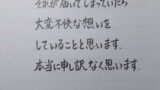 それが届いてしまっていたら
大変不快な想いを
していることと思います。
本当に申し訳なく思います。